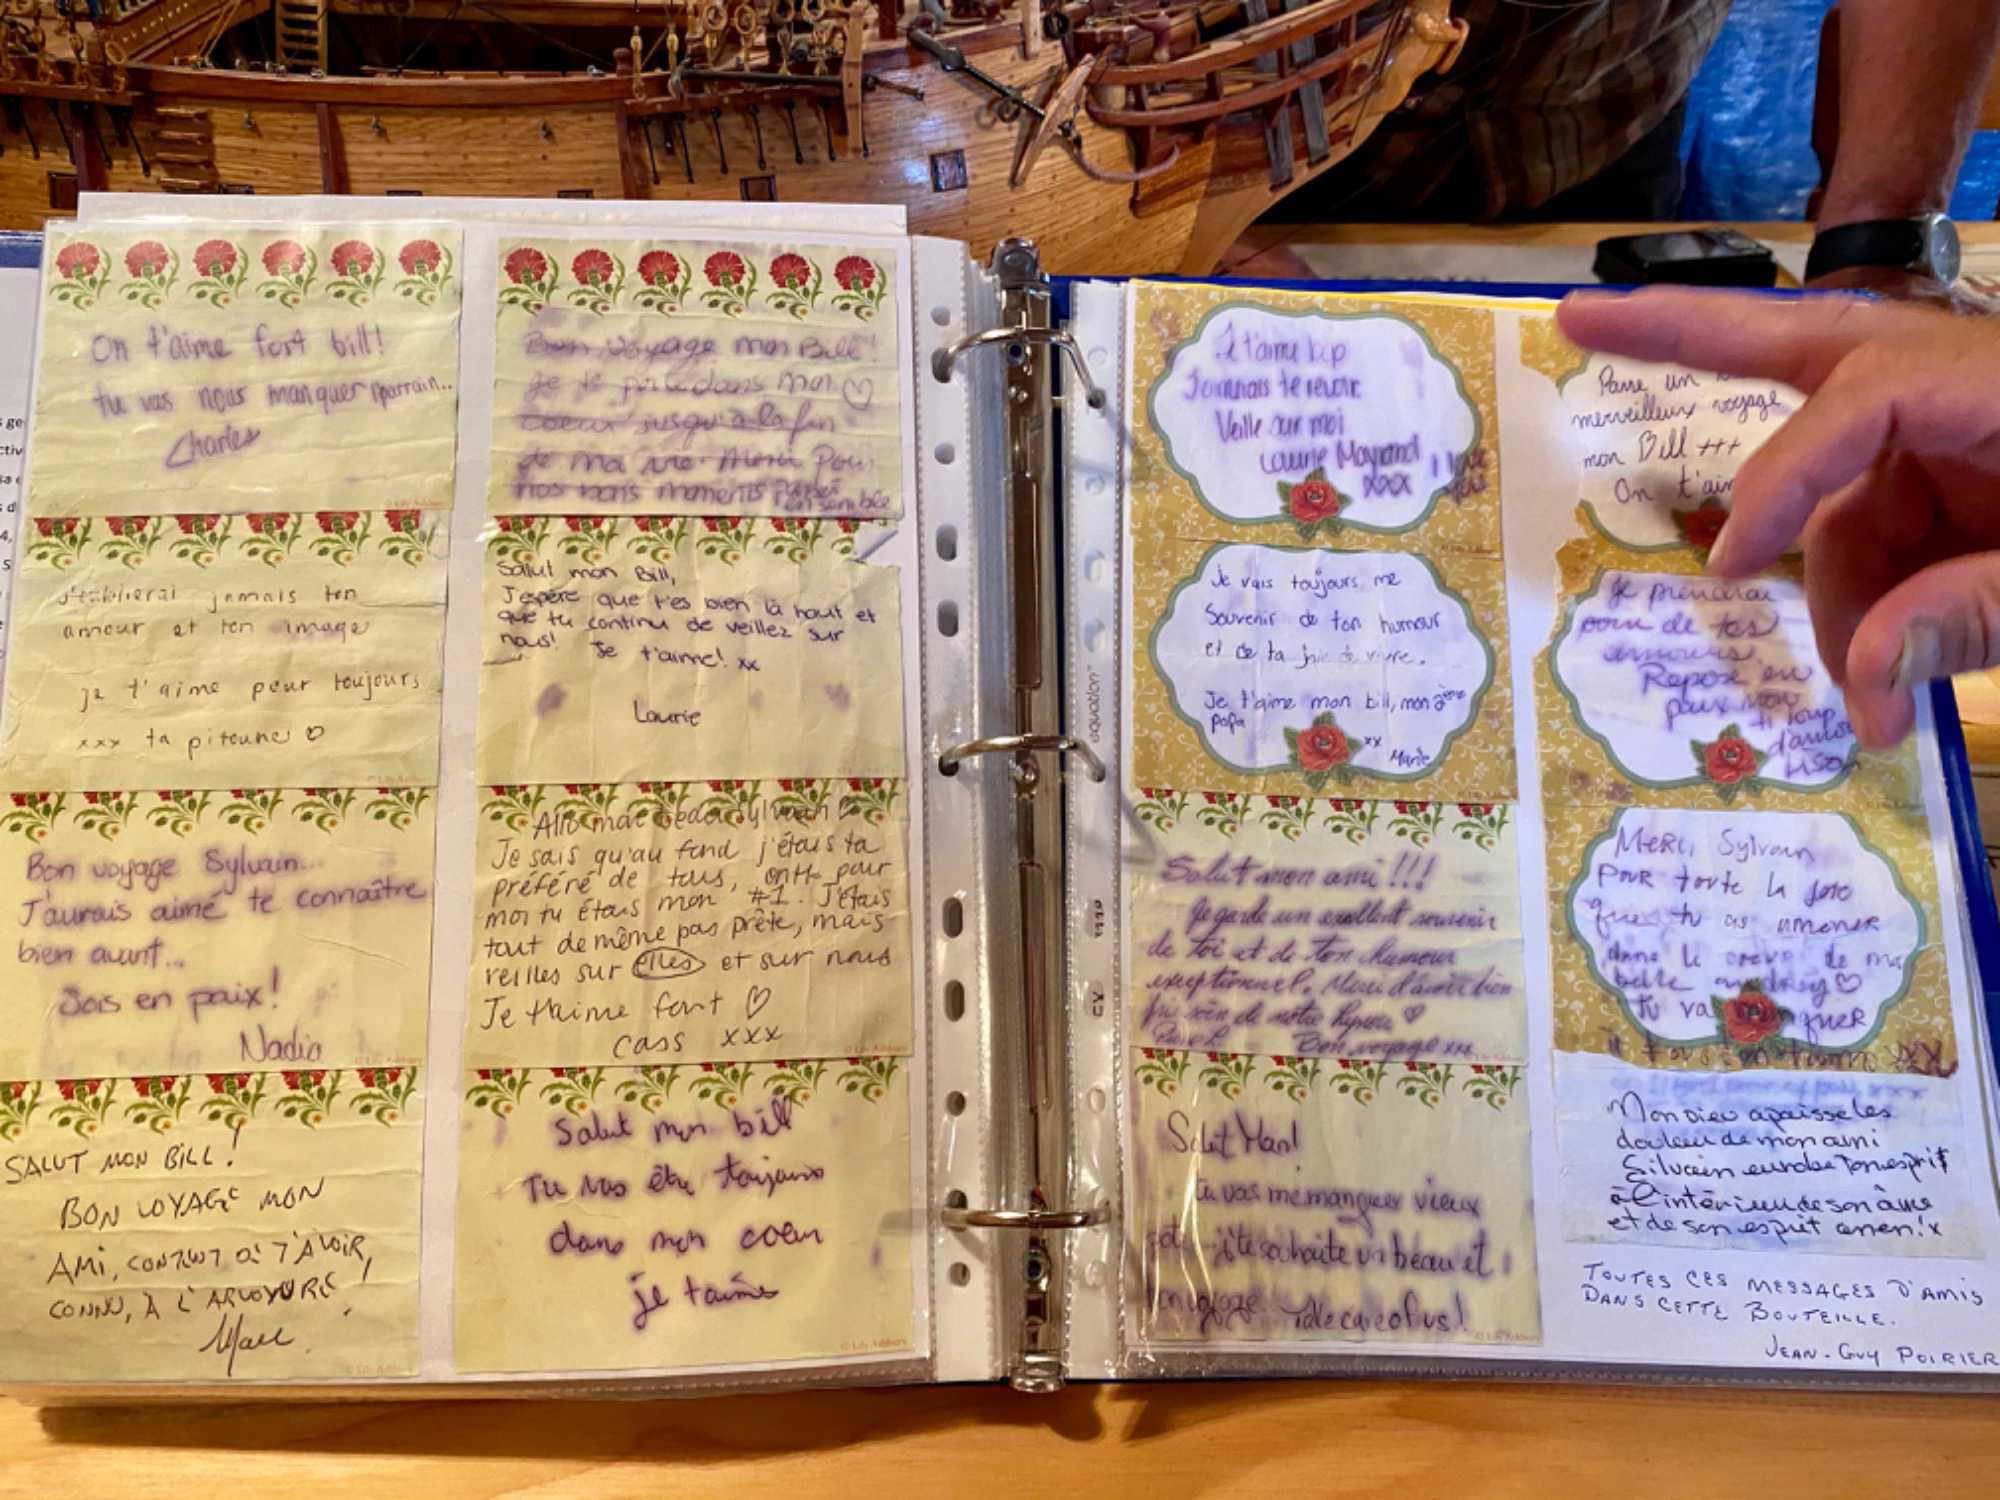 On t'aime fort bill!
tu vas nous manquer parrain..
Charles
J'oublierai jamais ton
amour et ton image
je t'aime pour toujours
xxx ta pitoune ♡
Bon voyage Sylvain...
J'aurais aimé te connaître
bien avant...
Sois en paix!
Nadia
SALUT MON BILL!
BON VOYAGE MON
AMI, CONTENT DE T'AVOIR
CONNU, À L'
Marc
Bon voyage mon Bill!
Je te porte dans mon ♡
coeur jusqu'à la fin
de ma vie. Merci pour
nos bons moments passés
ensemble
Salut mon Bill,
J'espère que t'es bien là haut et
que tu continu de veillez sur
nous! Je t'aime! xx
Laurie
Allo Sylvain ♡
Je sais qu'au fond j'étais ta
préféré de tous, pour
moi tu étais mon #1. J'étais
tout de même pas prête, mais
veilles sur elles et sur nous
Je t'aime fort ♡
Cass xxx
Salut mon bill
Tu vas être toujours
dans mon coeur
je t'aime
Je t'aime bcp
J'aimerais te revoir
Veille sur moi
Laurie Maynard
xxx I love
Je vais toujours me
souvenir de ton humour
et de ta joie de vivre.
Je t'aime mon bill, mon 2ème
papa
xx
Marie
Salut mon ami!!!
Je garde un excellent souvenir
de toi et de ton humour
exceptionnel. Merci d'avoir bien
pris soin de notre ♡
Bon voyage xx
Salut Man!
tu vas me manquer vieux
je te souhaite un beau et
bon voyage. Take care of us!
Passe un
merveilleux voyage
mon Bill +++
On t'aim
Je prendrai
soin de tes
amours
Repose en
paix mon
ti loup
d'amour
Lison
Merci Sylvain
pour toute la joie
que tu as amener
dans le coeur de ma
belle audrey ♡
tu va manquer
xxx
Mon Dieu apaisse les
douleur de mon ami
Silvain ton esprit
à l'intérieur de son âme
et de son esprit amen! x
TOUTES CES MESSAGES D'AMIS
DANS CETTE BOUTEILLE.
JEAN-GUY POIRIER
esqualon